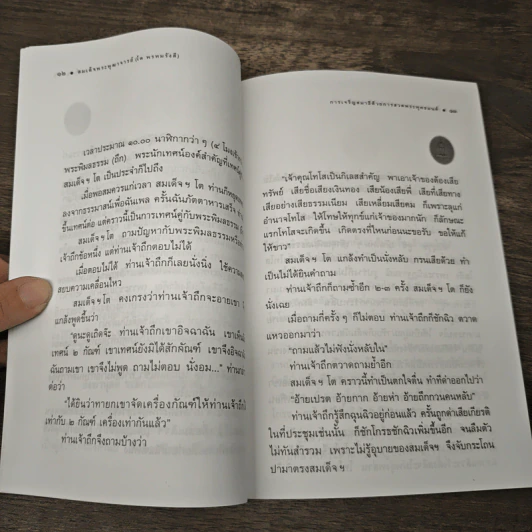 ๖๒ • สมเด็จพระพุฒาจารย์ (โต พรหมรังสี)
เวลาประมาณ ๑๐.๐๐ นาฬิกากว่า ๆ (๔ โมงเช้า
พระพิมลธรรม (ถึก) พระนักเทศน์องค์สำคัญที่เทศน์
สมเด็จฯ โต เป็นประจำก็ไปถึง
เมื่อพอสมควรแก่เวลา สมเด็จฯ โต ท่านก็
ลงจากธรรมาสน์เพื่อฉันเพล ครั้นฉันภัตตาหารเสร็จ
ขึ้นเทศน์ต่อ แต่คราวนี้เป็นการเทศน์คู่กับพระพิมลธรรม
สมเด็จฯ โต ถามปัญหากับพระพิมลธรรม
เจ้าถึกข้อหนึ่ง แต่ท่านเจ้าถึกตอบไม่ได้
เมื่อตอบไม่ได้ ท่านเจ้าถึกก็เลยนั่งนิ่ง ใช้ความ
สยบความเคลื่อนไหว
สมเด็จฯ โต คงเกรงว่าท่านเจ้าถึกจะอายเขา
แกล้งพูดขึ้นว่า
"ดูนะดูเถิดจ๊ะ ท่านเจ้าถึกเขาอิจฉาฉัน เขาเห็น
เทศน์ ๒ กัณฑ์ เขาเทศน์ยังมิได้สักกัณฑ์ เขาจึงอิจฉา
ฉันถามเขา เขาจึงไม่พูด ถามไม่ตอบ นั่งอม..." ท่าน
ต่อว่า
"ได้ยินว่าทายกเขาจัดเครื่องกัณฑ์ให้ท่านเจ้าถึก
เท่ากับ ๒ กัณฑ์ เครื่องเท่ากันแล้ว"
ท่านเจ้าถึกจึงถามบ้างว่า
การเจริญสมาธิด้วยการสวดพระพุทธมนต์ •
"เจ้าคุณโทโสเป็นกิเลสสำคัญ พาเอาเจ้าของต้องเสีย
ทรัพย์ เสียชื่อเสียงเงินทอง เสียน้องเสียพี่ เสียที่เสียทาง
เสียอย่างเสียธรรมเนียม เสียเหลี่ยมเสียคม ก็เพราะลุแก่
อำนาจโทโส ให้โทษให้ทุกข์แก่เจ้าของมากนัก ก็ลักษณะ
แรกโทโสจะเกิดขึ้น เกิดตรงที่ไหนก่อนนะขอรับ ขอให้แก้
ให้ขาว"
สมเด็จฯ โต แกล้งทำเป็นนั่งหลับ กรนเสียด้วย ทำ
เป็นไม่ได้ยินคำถาม
ท่านเจ้าถึกก็ถามซ้ำอีก ๒-๓ ครั้ง สมเด็จฯ โต ก็ยัง
นั่งเฉย
เมื่อถามกี่ครั้ง ๆ ก็ไม่ตอบ ท่านเจ้าถึกก็ชักฉิว ตวาด
แหวออกมาว่า
"ถามแล้วไม่ฟังนั่งหลับใน"
ท่านเจ้าถึกตวาดถามย้ำอีก
สมเด็จฯ โต คราวนี้ทำเป็นตกใจตื่น ทำทีด่าออกไปว่า
"อ้ายเปรต อ้ายกาก อ้ายห่า อ้ายถึกกวนคนหลับ"
ท่านเจ้าถึกรู้สึกฉุนฉิวอยู่ก่อนแล้ว ครั้นถูกด่าเสียเกียรติ
ในที่ประชุมเช่นนั้น ก็ชักโกรธชักฉิวเพิ่มขึ้นอีก จนลืมตัว
ไม่ทันสำรวม เพราะไม่รู้อุบายของสมเด็จฯ จึงจับกระโถน
ปามาตรงสมเด็จฯ